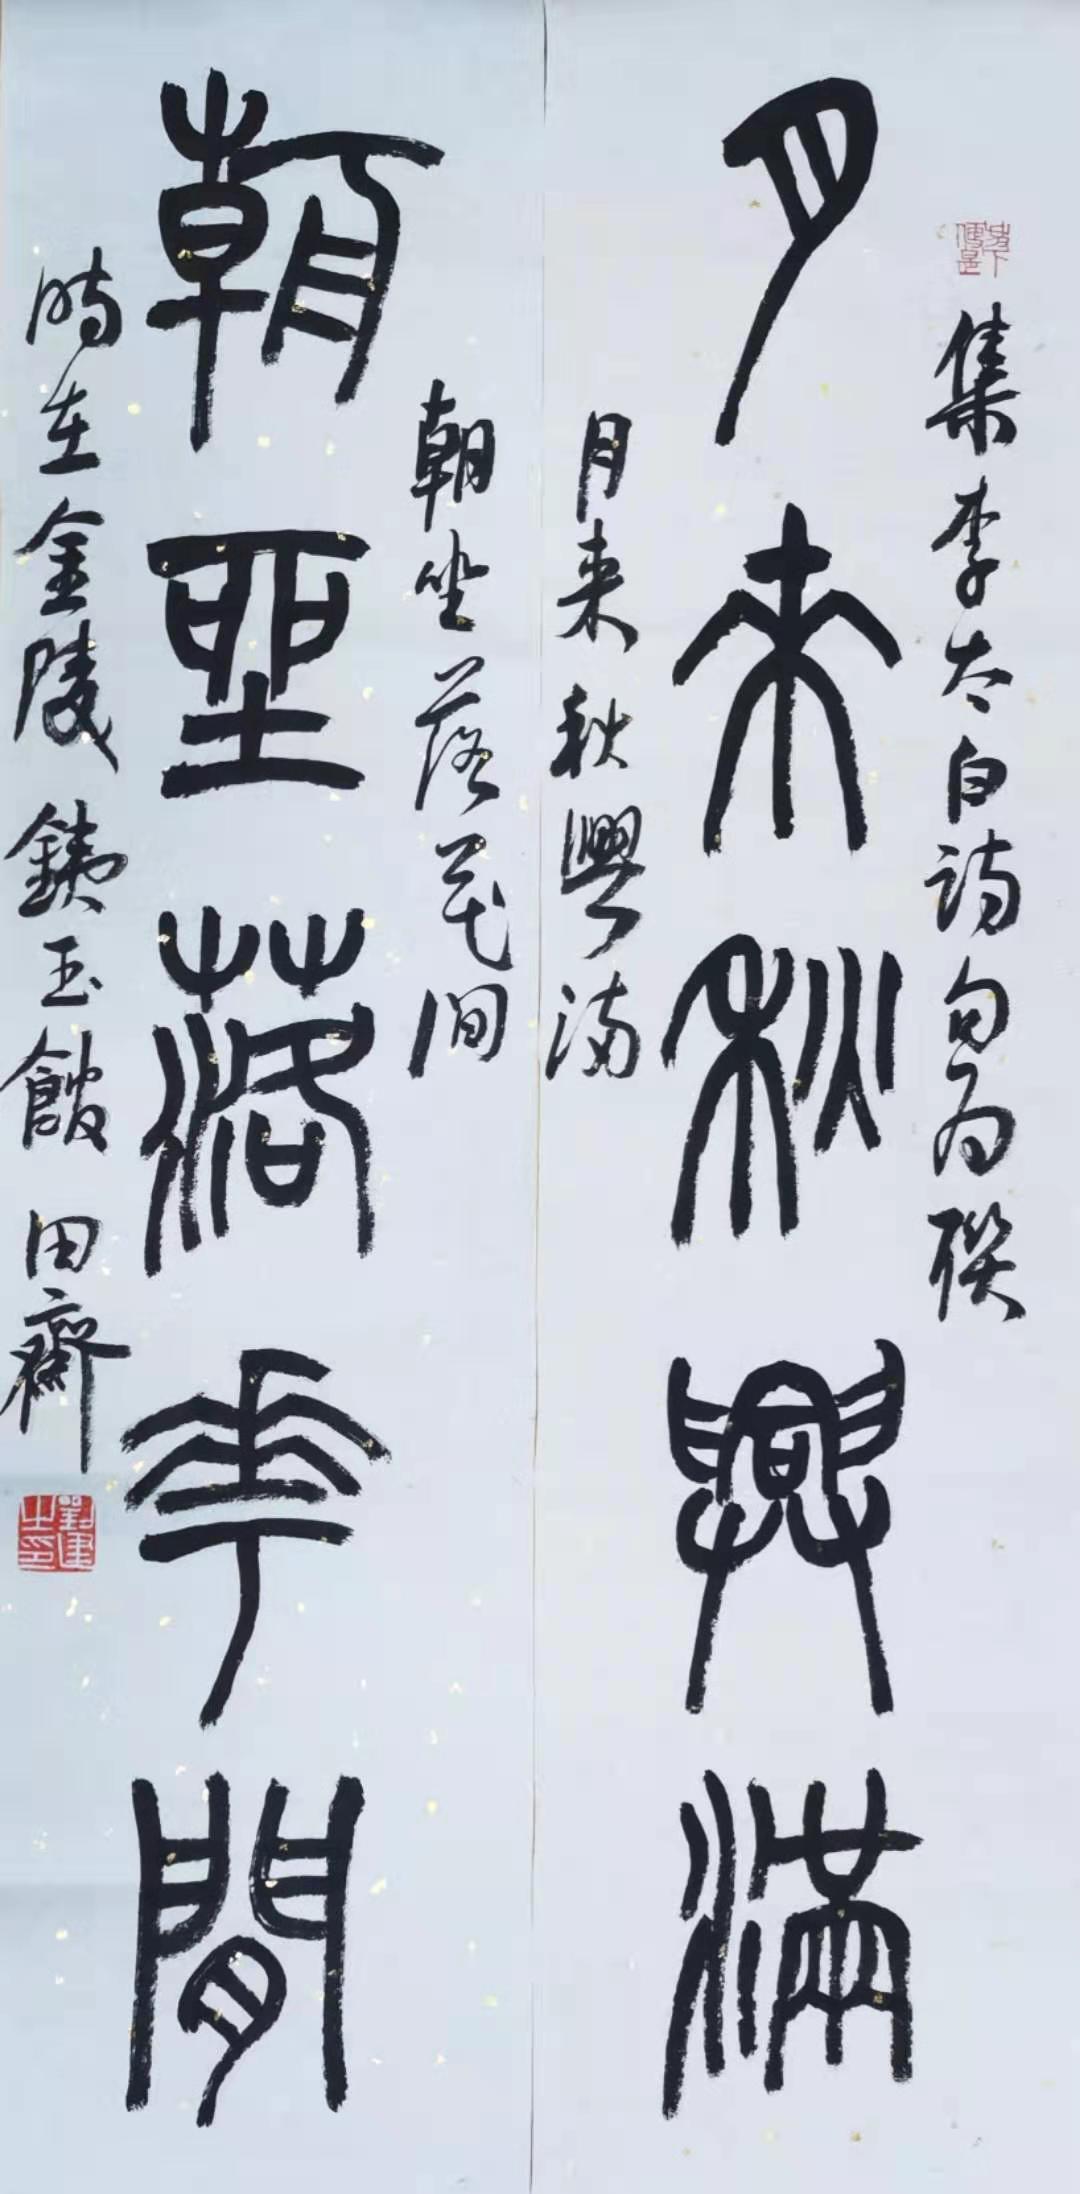 集李太白詩句為聯
月來秋興滿
月来秋興滿
朝坐落花間
朝坐落華間
時在金陵銕玉館 田齋
劉建之印